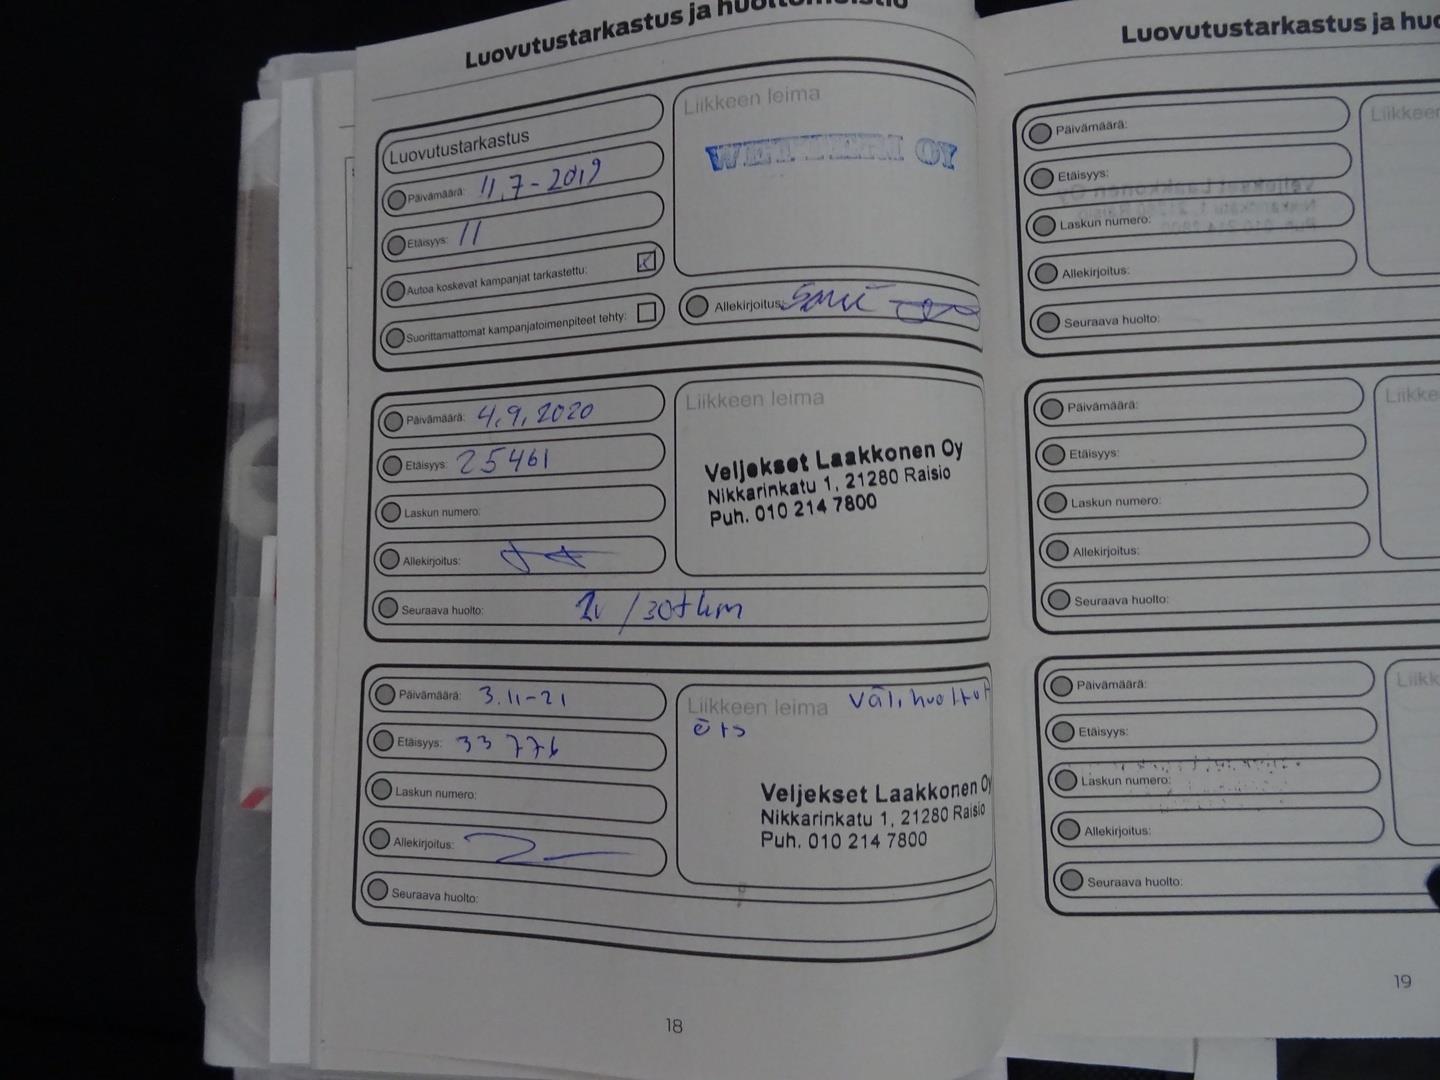 Luovutustarkastus ja huoltomuistio
Luovutustarkastus
Päivämäärä: 11.7-2019
Etäisyys: 11
Autoa koskevat kampanjat tarkastettu:
Suorittamattomat kampanjatoimenpiteet tehty:
Liikkeen leima
WETTERI OY
Allekirjoitus:
Päivämäärä: 4.9.2020
Etäisyys: 25461
Laskun numero:
Allekirjoitus:
Seuraava huolto: /30tkm
Liikkeen leima
Veljekset Laakkonen Oy
Nikkarinkatu 1, 21280 Raisio
Puh. 010 214 7800
Päivämäärä: 3.11-21
Etäisyys: 33 776
Laskun numero:
Allekirjoitus:
Seuraava huolto:
Liikkeen leima Välihuollot
Veljekset Laakkonen Oy
Nikkarinkatu 1, 21280 Raisio
Puh. 010 214 7800
18
Luovutustarkastus ja huo
Päivämäärä:
Etäisyys:
Laskun numero:
Allekirjoitus:
Seuraava huolto:
Liikkeen
Päivämäärä:
Etäisyys:
Laskun numero:
Allekirjoitus:
Seuraava huolto:
Liikke
Päivämäärä:
Etäisyys:
Laskun numero:
Allekirjoitus:
Seuraava huolto:
Liikk
19